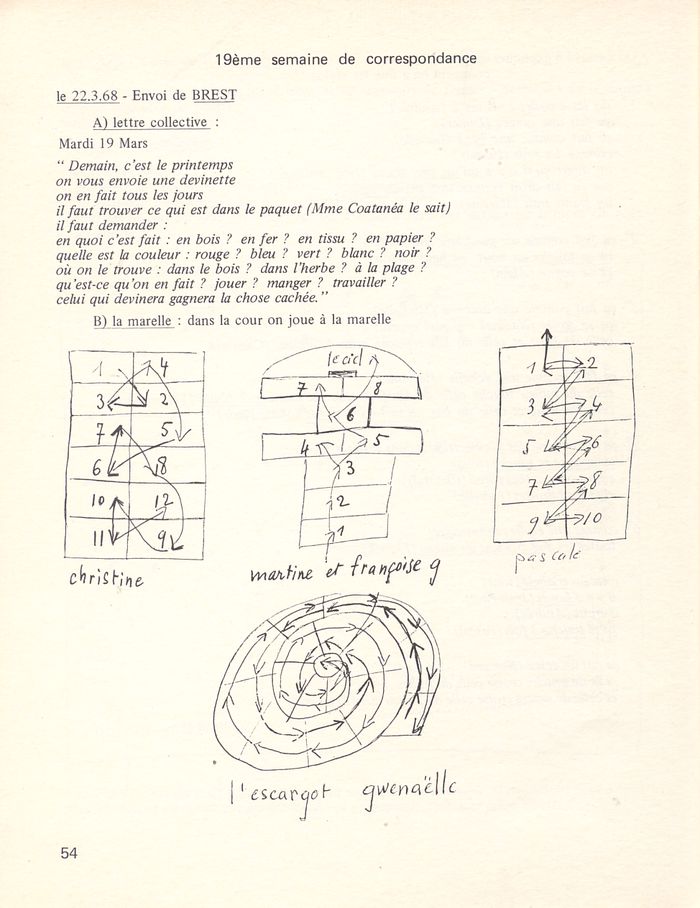 19ème semaine de correspondance
le 22.3.68 - Envoi de BREST
A) lettre collective :
Mardi 19 Mars
“ Demain, c'est le printemps
on vous envoie une devinette
on en fait tous les jours
il faut trouver ce qui est dans le paquet (Mme Coatanéa le sait)
il faut demander :
en quoi c'est fait : en bois ? en fer ? en tissu ? en papier ?
quelle est la couleur : rouge ? bleu ? vert ? blanc ? noir ?
où on le trouve : dans le bois ? dans l'herbe ? à la plage ?
qu'est-ce qu'on en fait ? jouer ? manger ? travailler ?
celui qui devinera gagnera la chose cachée.”
B) la marelle : dans la cour on joue à la marelle
1 4
3 2
7 5
6 8
10 12
11 9
christine
le ciel
7 8
6
4 5
3
2
1
martine et françoise g
1 2
3 4
5 6
7 8
9 10
pascale
l'escargot gwenaëlle
54